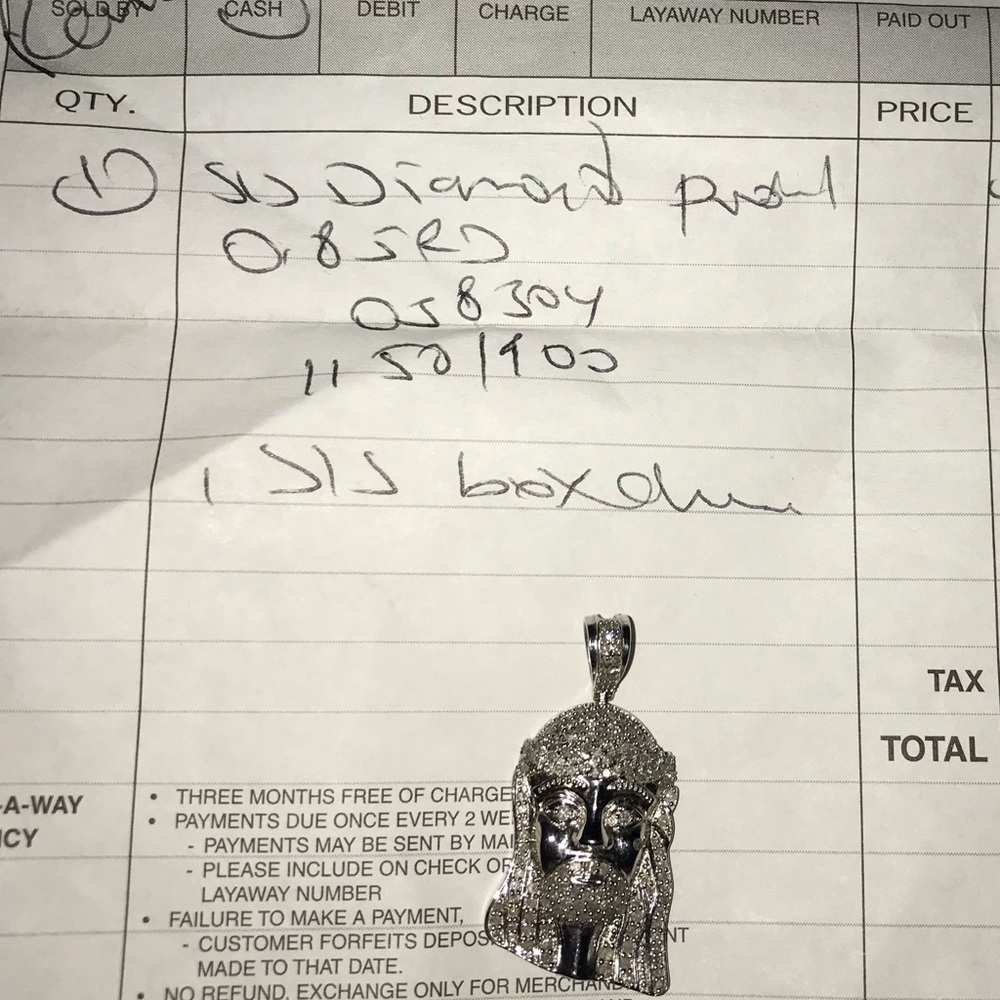 SOLD BY CASH DEBIT CHARGE LAYAWAY NUMBER PAID OUT
QTY. DESCRIPTION PRICE
1 S/S Diamond
0.85RD
058304
1150/900
1 S/S box
TAX
TOTAL
-A-WAY
ICY
• THREE MONTHS FREE OF CHARGE
• PAYMENTS DUE ONCE EVERY 2 WE
- PAYMENTS MAY BE SENT BY MAI
- PLEASE INCLUDE ON CHECK OR
LAYAWAY NUMBER
• FAILURE TO MAKE A PAYMENT,
- CUSTOMER FORFEITS DEPOS NT
MADE TO THAT DATE.
• NO REFUND, EXCHANGE ONLY FOR MERCHAND